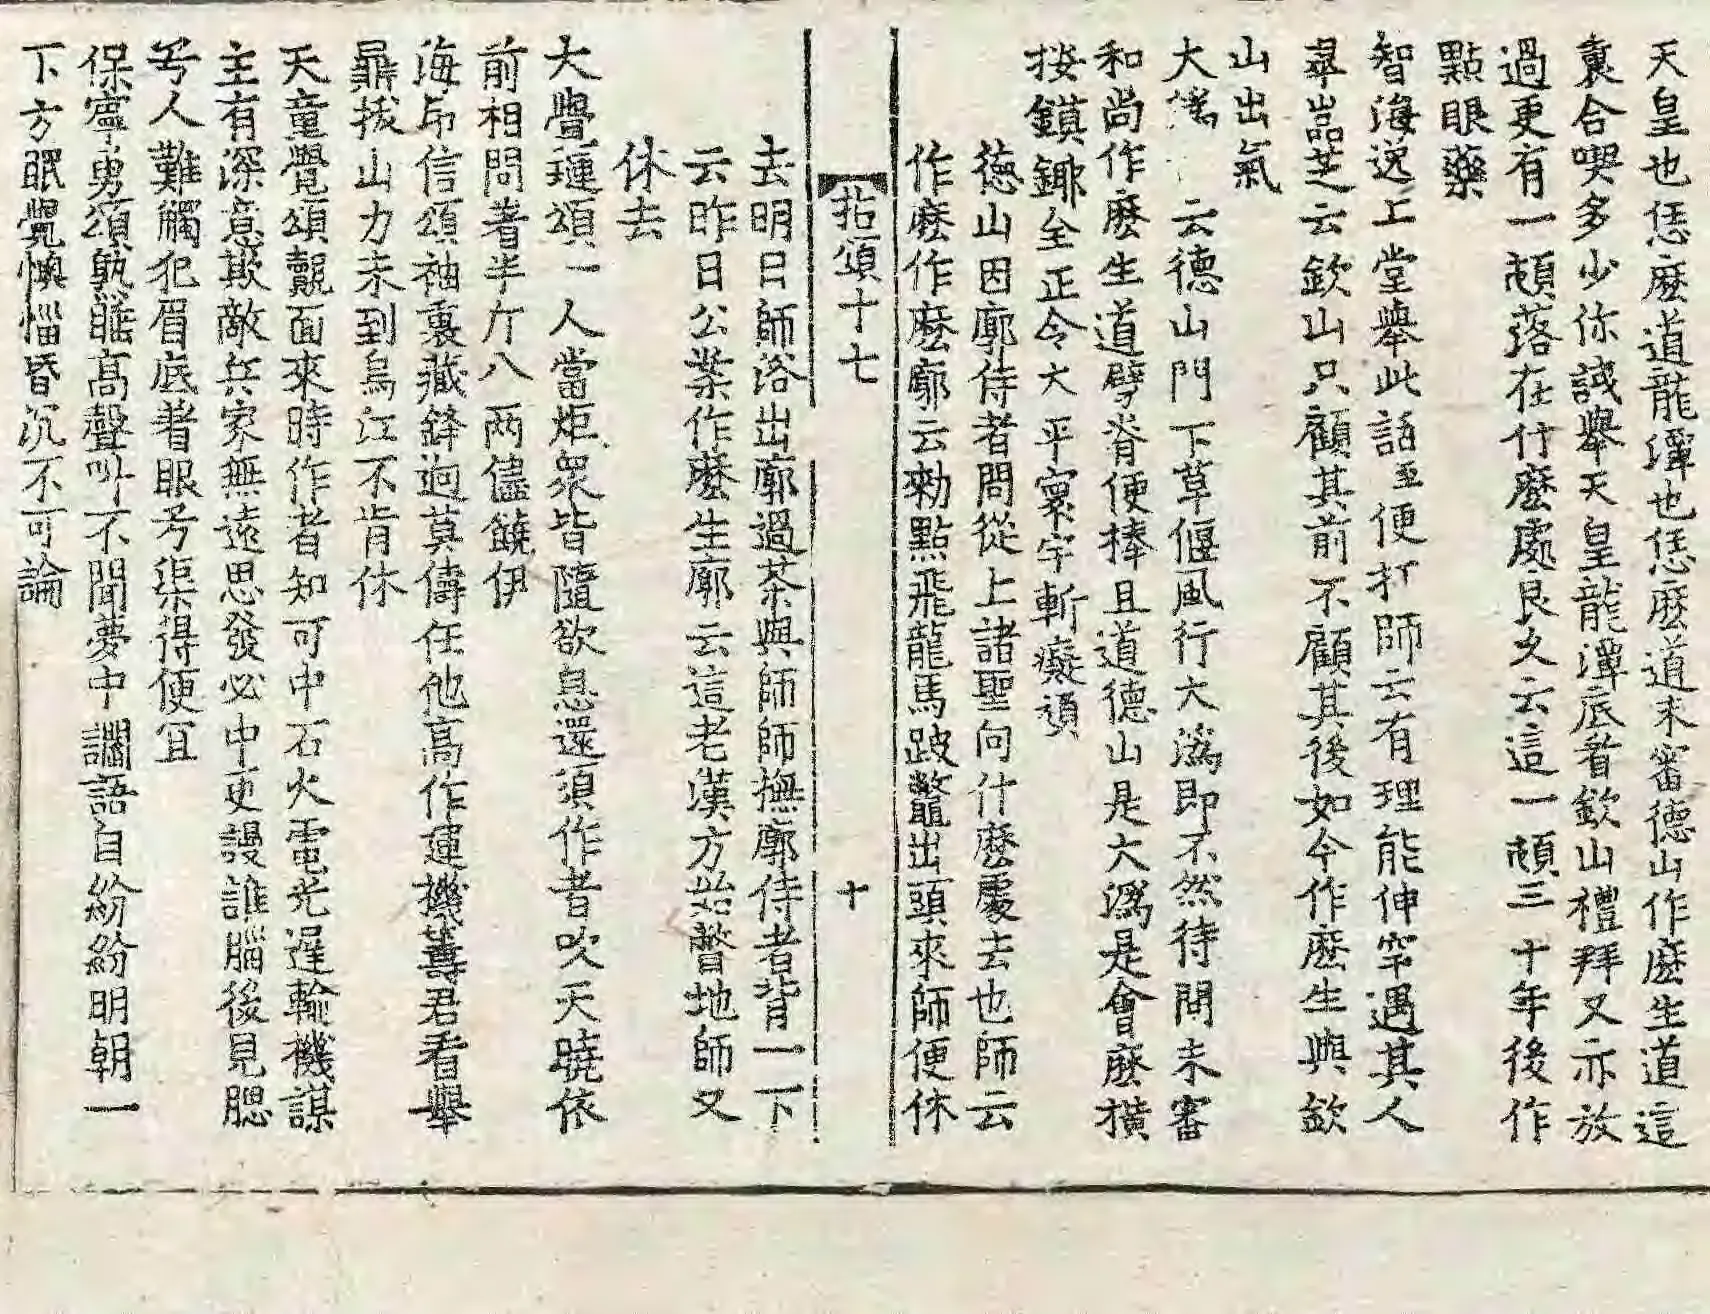 天皇也恁麽道龍潭也恁麽道未審德山作麽生道這
裏合喫多少你試擧天皇龍潭底看欽山禮拜又示放
過更有一頓落在什麽處良久云這一頓三十年後作
點眼藥
智海逸上堂擧此話至便打師云有理能伸罕遇其人
翠嵓芝云欽山只顧其前不顧其後如今作麽生與欽
山出氣
大潙 云德山門下草偃風行大潙即不然待問未審
和尚作麽生道劈脊便棒且道德山是大潙是會麽橫
按鏌鎁全正令大平寰宇斬癡頑
德山因廓侍者問從上諸聖向什麽處去也師云
作麽作麽廓云勑點飛龍馬跛鼈出頭來師便休
拈頌十七 十
去明日師浴出廓過茶與師師撫廓侍者背一下
云昨日公案作麽生廓云這老漢方始瞥地師又
休去
大覺璉頌一人當炬衆皆隨欲息還須作者吹天曉依
前相問著半斤八兩儘饒伊
海印信頌袖裏藏鋒逈莫儔任他高作運機籌君看擧
鼎拔山力未到烏江不肯休
天童覺頌覿面來時作者知可中石火電光遲輸機謀
主有深意欺敵兵家無遠思發必中更謾誰腦後見腮
兮人難觸犯眉底着眼兮渠得便宜
保寧勇頌孰睡高聲叫不聞夢中讕語自紛紛明朝一
下方眠覺懊惱昏沉不可論